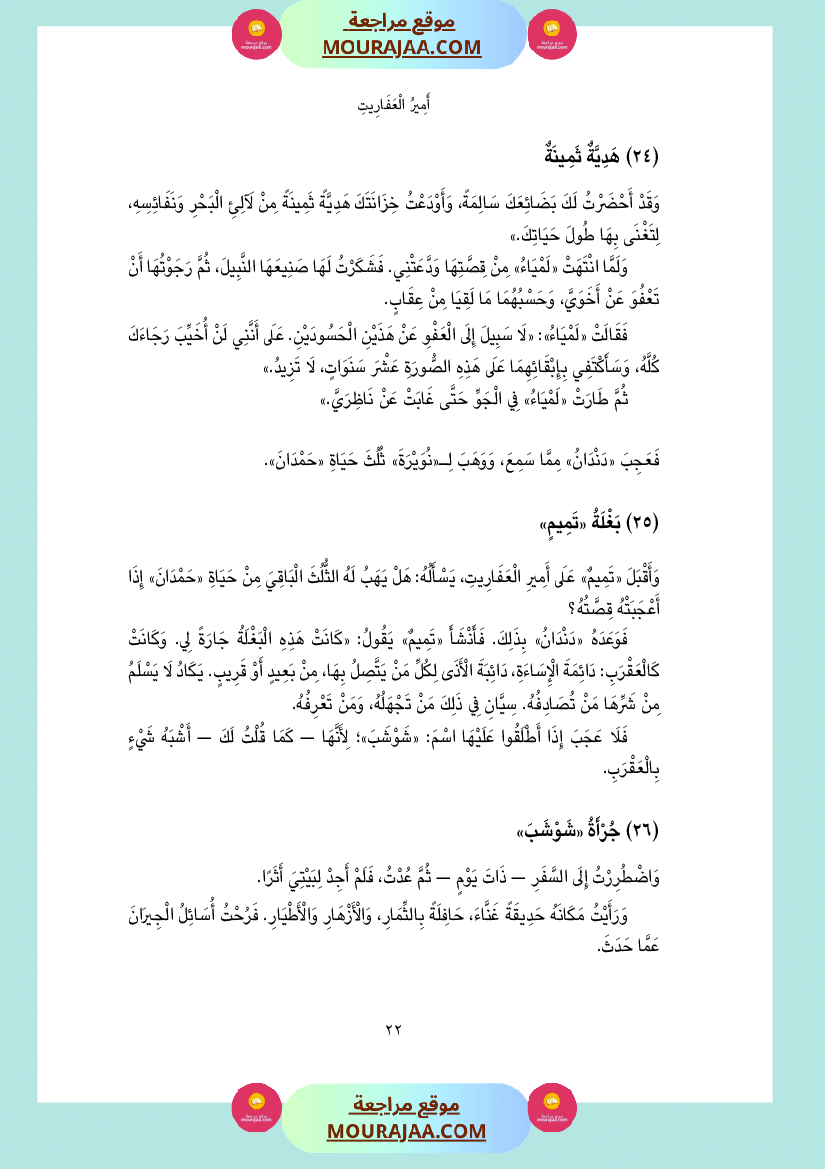 موقع مراجعة
MOURAJAA.COM
أَمِيرُ الْعَفَارِيتِ
(٢٤) هَدِيَّةٌ ثَمِينَةٌ
وَقَدْ أَحْضَرْتُ لَكَ بَضَائِعَكَ سَالِمَةً، وَأَوْدَعْتُ خِزَانَتَكَ هَدِيَّةً ثَمِينَةً مِنْ لَآلِئِ الْبَحْرِ وَنَفَائِسِهِ،
لِتَغْنَى بِهَا طُولَ حَيَاتِكَ.»
وَلَمَّا انْتَهَتْ «لَمْيَاءُ» مِنْ قِصَّتِهَا وَدَّعَتْنِي. فَشَكَرْتُ لَهَا صَنِيعَهَا النَّبِيلَ، ثُمَّ رَجَوْتُهَا أَنْ
تَعْفُوَ عَنْ أَخَوَيَّ، وَحَسْبُهُمَا مَا لَقِيَا مِنْ عِقَابٍ.
فَقَالَتْ «لَمْيَاءُ»: «لَا سَبِيلَ إِلَى الْعَفْوِ عَنْ هَذَيْنِ الْحَسُودَيْنِ. عَلَى أَنَّنِي لَنْ أُخَيِّبَ رَجَاءَكَ
كُلَّهُ، وَسَأَكْتَفِي بِإِبْقَائِهِمَا عَلَى هَذِهِ الصُّورَةِ عَشْرَ سَنَوَاتٍ، لَا تَزِيدُ.»
ثُمَّ طَارَتْ «لَمْيَاءُ» فِي الْجَوِّ حَتَّى غَابَتْ عَنْ نَاظِرَيَّ.»
فَعَجِبَ «دَنْدَانُ» مِمَّا سَمِعَ، وَوَهَبَ لِـ«نُوَيْرَةَ» ثُلُثَ حَيَاةِ «حَمْدَانَ».
(٢٥) بَغْلَةُ «تَمِيمٍ»
وَأَقْبَلَ «تَمِيمٌ» عَلَى أَمِيرِ الْعَفَارِيتِ، يَسْأَلُهُ: هَلْ يَهَبُ لَهُ الثُّلُثَ الْبَاقِيَ مِنْ حَيَاةِ «حَمْدَانَ» إِذَا
أَعْجَبَتْهُ قِصَّتُهُ؟
فَوَعَدَهُ «دَنْدَانُ» بِذَلِكَ. فَأَنْشَأَ «تَمِيمٌ» يَقُولُ: «كَانَتْ هَذِهِ الْبَغْلَةُ جَارَةً لِي. وَكَانَتْ
كَالْعَقْرَبِ: دَائِمَةَ الْإِسَاءَةِ، دَائِبَةَ الْأَذَى لِكُلِّ مَنْ يَتَّصِلُ بِهَا، مِنْ بَعِيدٍ أَوْ قَرِيبٍ. يَكَادُ لَا يَسْلَمُ
مِنْ شَرِّهَا مَنْ تُصَادِفُهُ. سِيَّانِ فِي ذَلِكَ مَنْ تَجْهَلُهُ، وَمَنْ تَعْرِفُهُ.
فَلَا عَجَبَ إِذَا أَطْلَقُوا عَلَيْهَا اسْمَ: «شَوْشَبَ»؛ لِأَنَّهَا — كَمَا قُلْتُ لَكَ — أَشْبَهُ شَيْءٍ
بِالْعَقْرَبِ.
(٢٦) جُرْأَةُ «شَوْشَبَ»
وَاضْطُرِرْتُ إِلَى السَّفَرِ — ذَاتَ يَوْمٍ — ثُمَّ عُدْتُ، فَلَمْ أَجِدْ لِبَيْتِيَ أَثَرًا.
وَرَأَيْتُ مَكَانَهُ حَدِيقَةً غَنَّاءَ، حَافِلَةً بِالثِّمَارِ، وَالْأَزْهَارِ وَالْأَطْيَارِ. فَرُحْتُ أُسَائِلُ الْجِيرَانَ
عَمَّا حَدَثَ.
٢٢
موقع مراجعة
MOURAJAA.COM